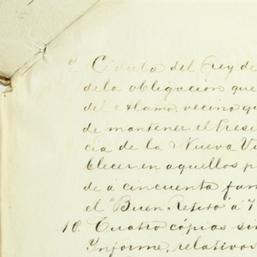 Cédula del Rey de
de la obligacion que
del Alamo vecino q
de mantener el Presi
cia de la Nueva Vi
blecer en aquellos p
de á cincuenta fam
el "Buen Retiro á 7
10. Cuatro cópias sim
Informe, relativos